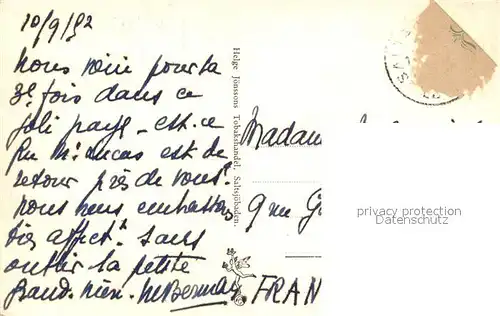 10/9/52
Nous voici pour la
3e fois dans ce
joli pays - est-ce
que Mr. Lucas est de
retour près de vous?
nous vous embrassons
très affect.t sans
oublier la petite
Grand. mère.
Helge Jönssons Tobakshandel. Saltsjöbaden.
Madam
9 rue G
FRAN
privacy protection
Datenschutz